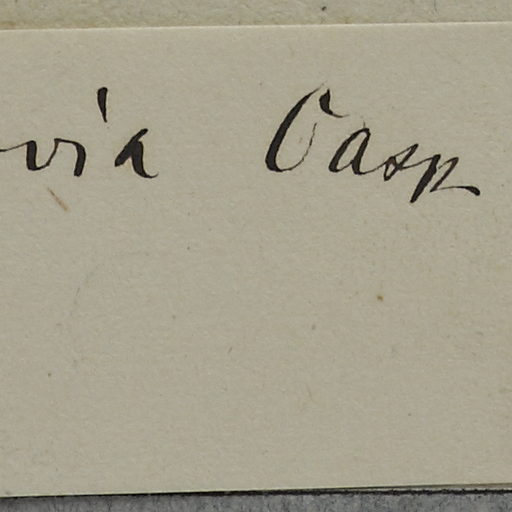 via Casp